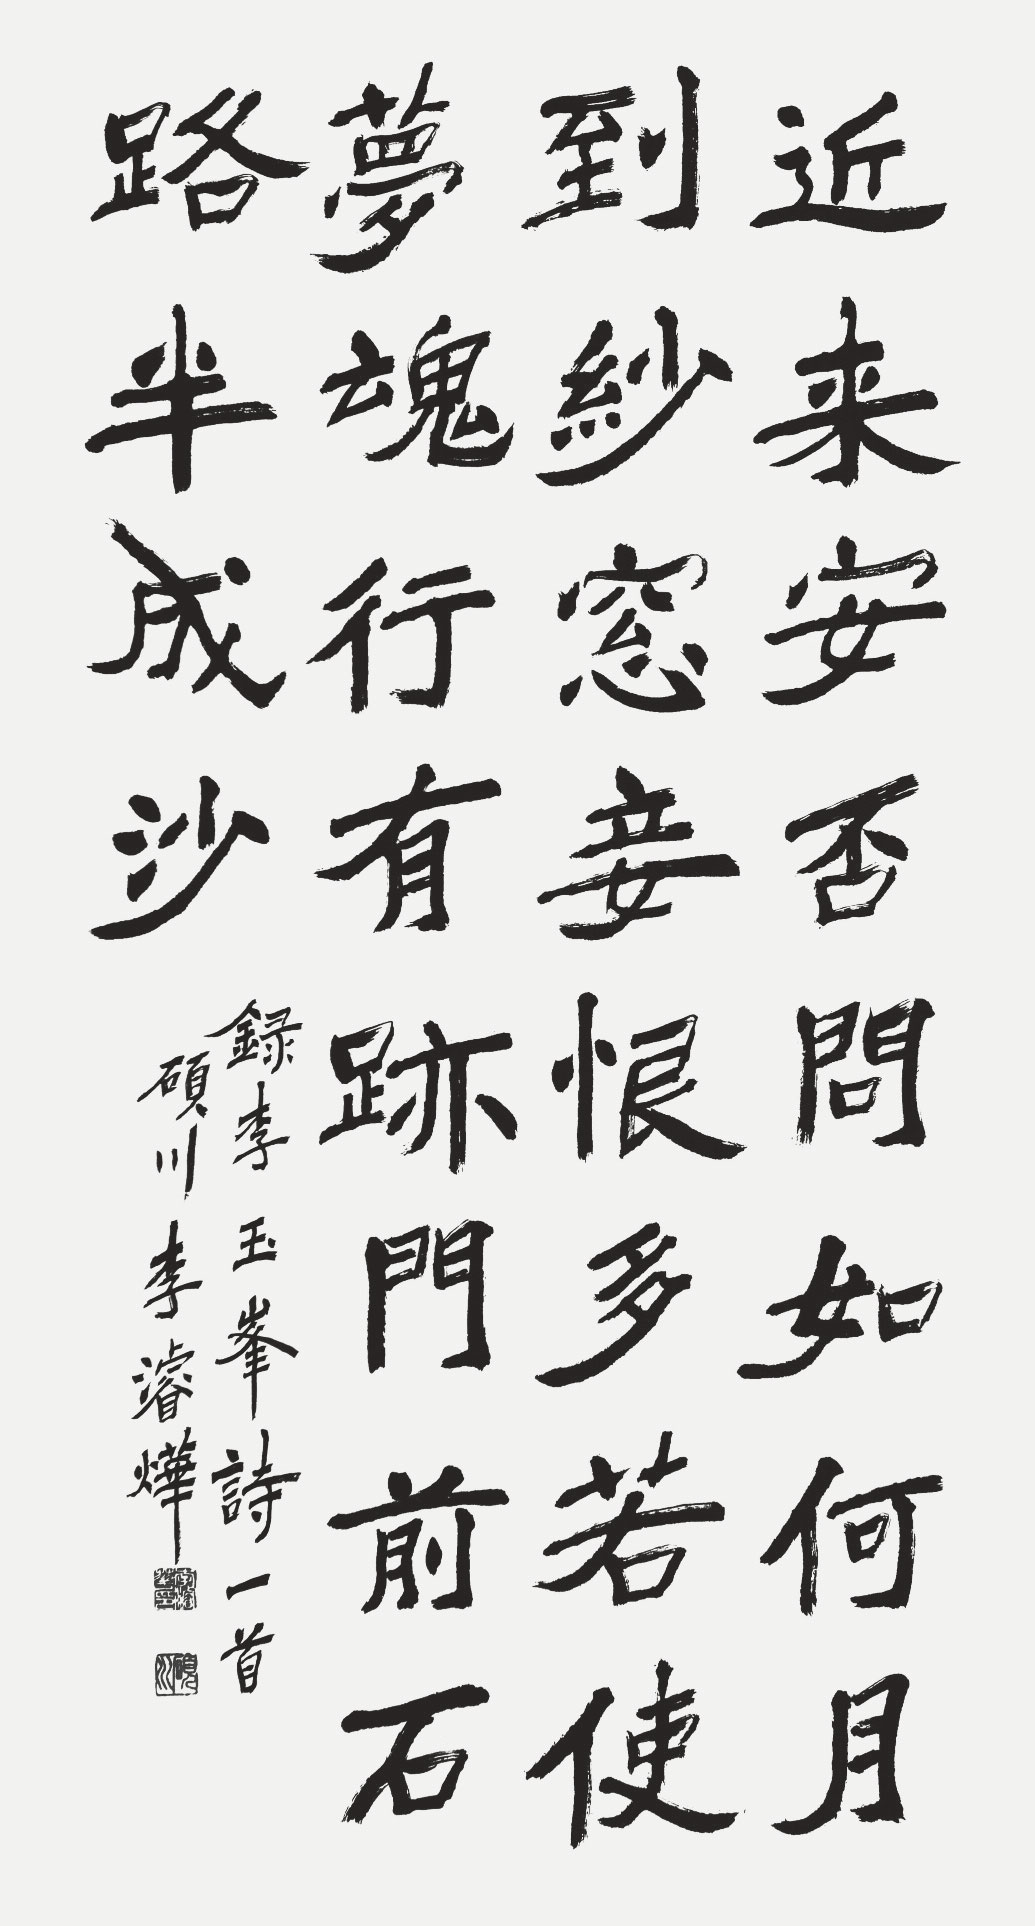 近来安否問如何月
到紗窓妾恨多若使
夢魂行有跡門前石
路半成沙
録李玉峯詩一首
碩川李濬燁